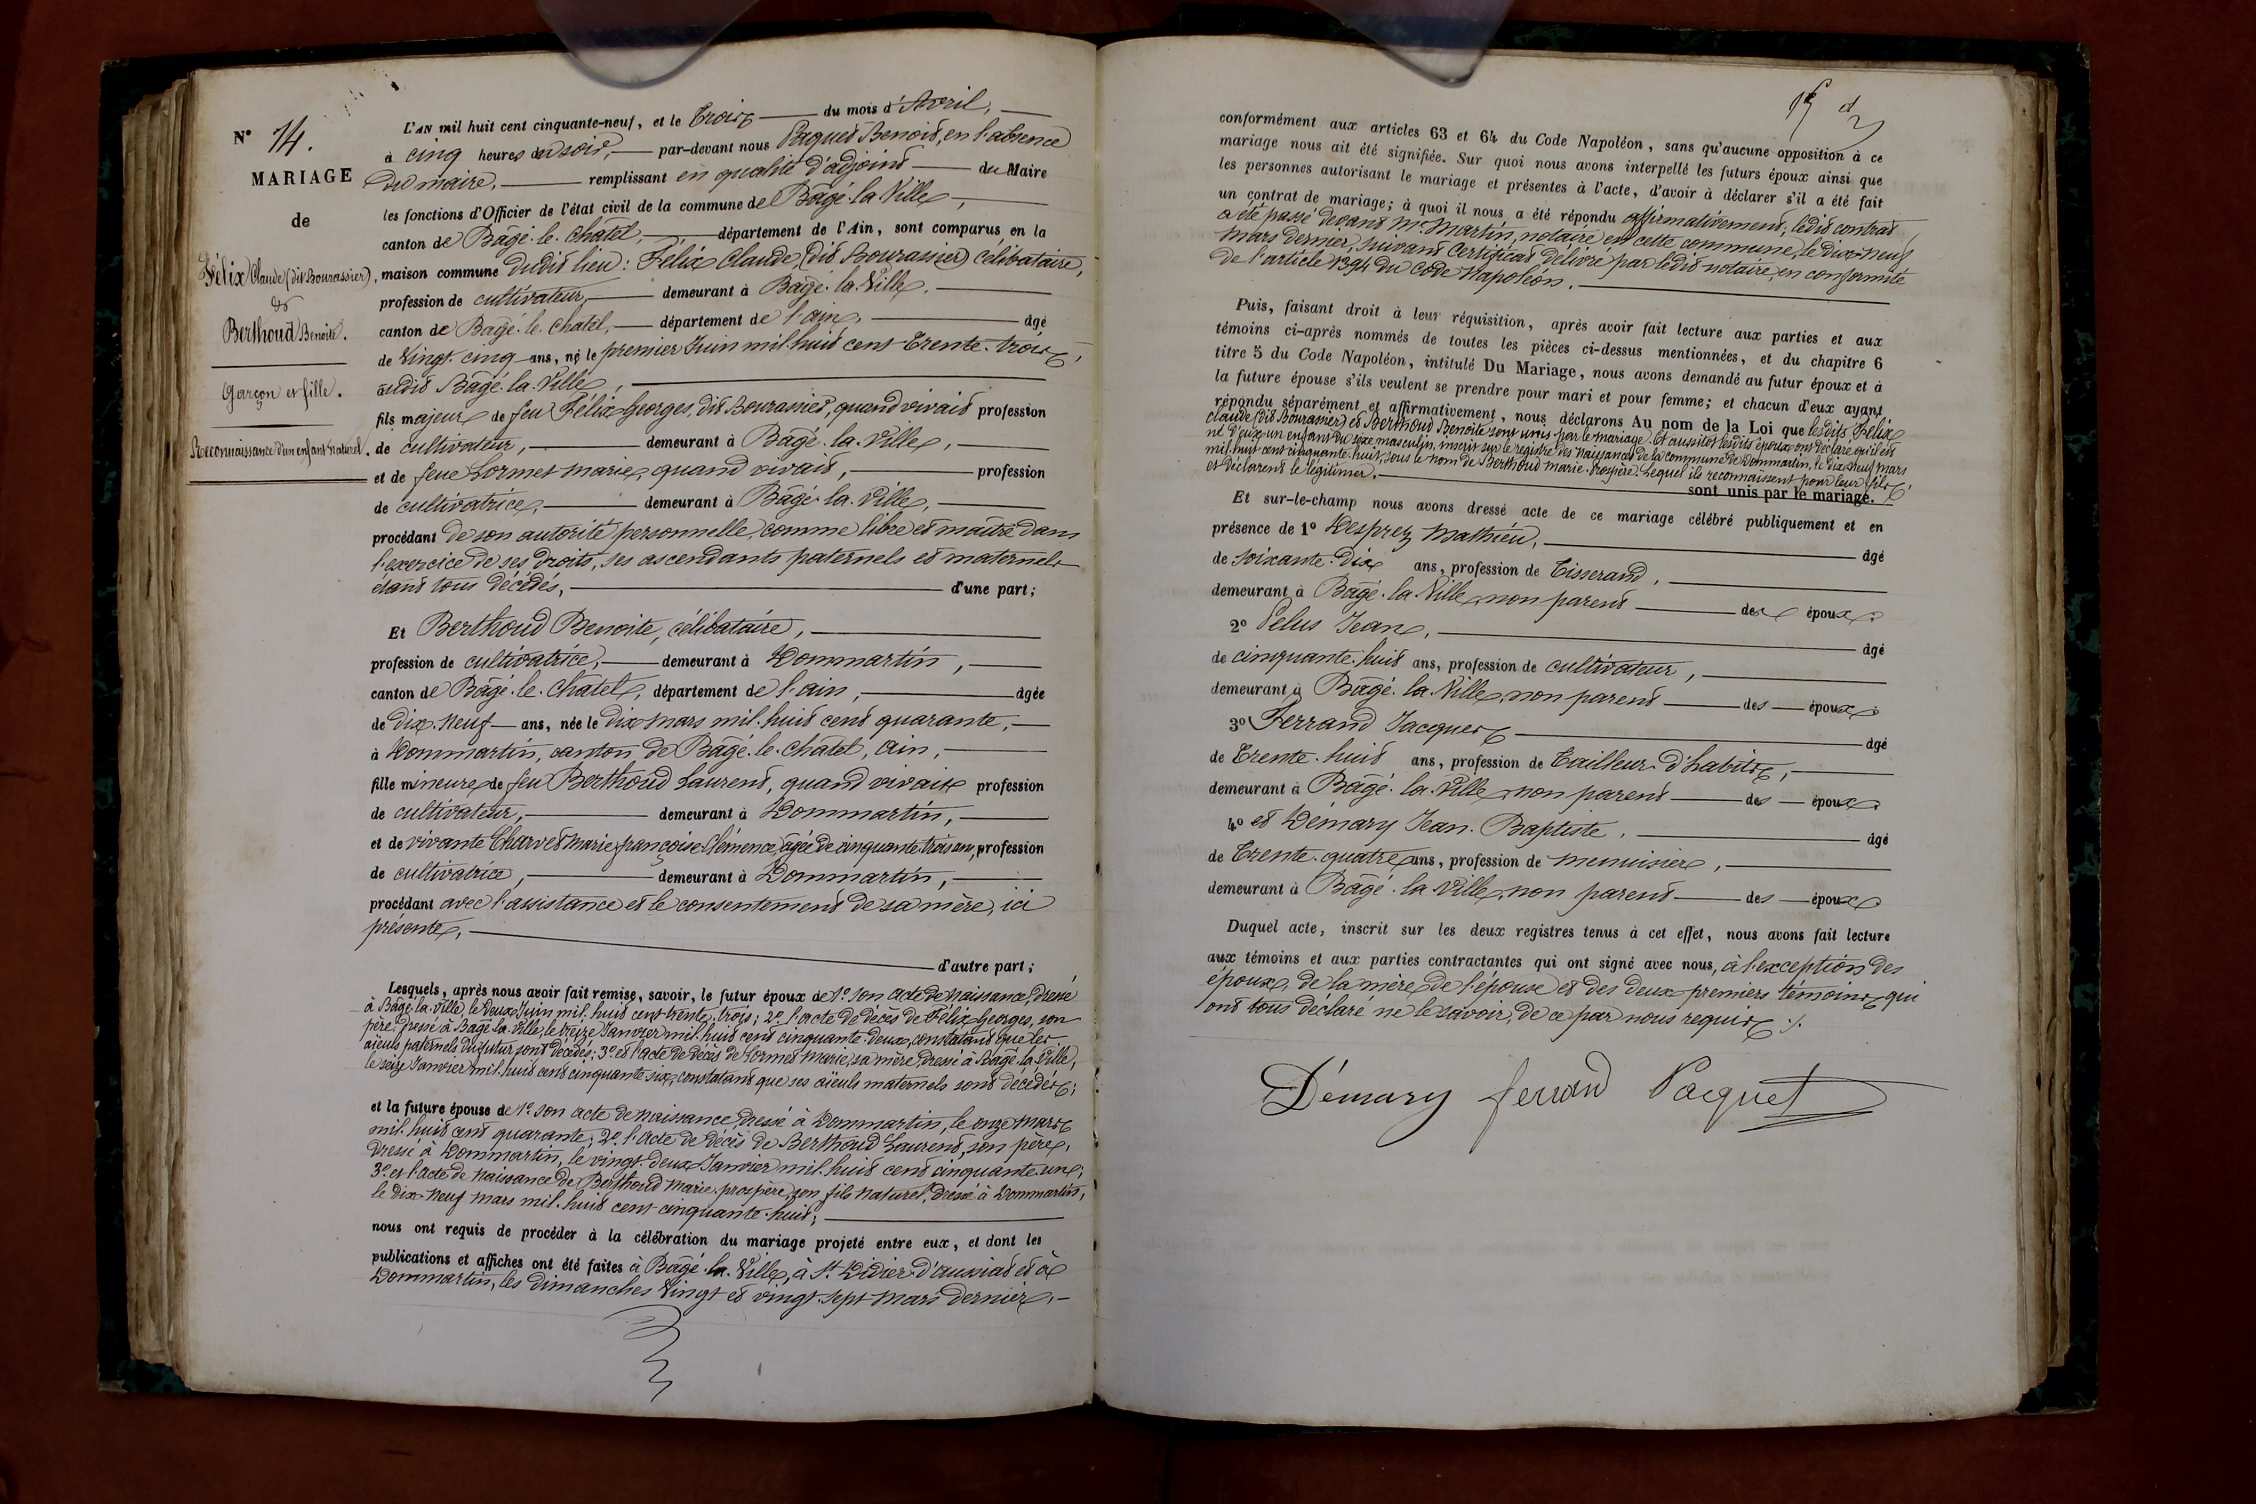 N° 14.
MARIAGE
de
Félix Claude (dit Bourassier),
&
Berthoud Benoite.
Garçon et fille.
Reconnaissance d'un enfant naturel.
L'AN mil huit cent cinquante-neuf, et le Trois du mois d'Avril,
à cinq heures du soir, par-devant nous Paquet Benoit, en l'absence
du maire, remplissant en qualité d'adjoint du Maire
les fonctions d'Officier de l'état civil de la commune de Bâgé-la-Ville,
canton de Bâgé-le-Châtel, département de l'Ain, sont comparus en la
maison commune dudit lieu : Félix Claude, (dit Bourassier) célibataire,
profession de cultivateur, demeurant à Bâgé-la-Ville,
canton de Bâgé-le-Châtel, département de l'ain, âgé
de Vingt-cinq ans, né le premier Juin mil-huit cent Trente-trois,
audit Bâgé-la-Ville,
fils majeur de feu Félix Georges, dit Bourassier, quand vivait profession
de cultivateur, demeurant à Bâgé-la-Ville,
et de feue Lormet Marie, quand vivait, profession
de cultivatrice, demeurant à Bâgé-la-Ville,
procédant de son autorité personnelle, comme libre et maître dans
l'exercice de ses droits, ses ascendants paternels et maternels
étant tous décédés, d'une part ;
Et Berthoud Benoite, célibataire,
profession de cultivatrice, demeurant à Dommartin,
canton de Bâgé-le-Châtel, département de l'ain, âgée
de dix-neuf ans, née le dix mars mil-huit cent quarante,
à Dommartin, canton de Bâgé-le-châtel, Ain,
fille mineure de feu Berthoud Laurent, quand vivait profession
de cultivateur, demeurant à Dommartin,
et de vivante Charvet Marie françoise Clémence, âgée de cinquante-trois ans, profession
de cultivatrice, demeurant à Dommartin,
procédant avec l'assistance et le consentement de sa mère, ici
présente,
d'autre part ;
Lesquels, après nous avoir fait remise, savoir, le futur époux de 1° son acte de Naissance, dressé
à Bâgé-la-Ville, le deux Juin mil-huit cent trente-trois ; 2° l'acte de décès de Félix Georges, son
père, dressé à Bâgé-la-Ville, le treize Janvier mil-huit cent cinquante-deux, constatant que les
aïeuls paternels du futur sont décédés ; 3° et l'acte de décès de Lormet Marie, sa mère, dressé à Bâgé-la-Ville,
le seize Janvier mil-huit cent cinquante-six, constatant que ses aïeuls maternels sont décédés ;
et la future épouse de 1° son acte de naissance, dressé à Dommartin, le onze mars
mil-huit cent quarante ; 2° l'acte de décès de Berthoud Laurent, son père,
dressé à Dommartin, le vingt-deux Janvier mil-huit cent cinquante-un ;
3° et l'acte de Naissance de Berthoud Marie-prospère, son fils naturel, dressé à Dommartin,
le dix-neuf mars mil-huit cent cinquante-huit ;
nous ont requis de procéder à la célébration du mariage projeté entre eux, et dont les
publications et affiches ont été faites à Bâgé-la-Ville, à St Didier d'aussiat et à
Dommartin, les dimanches Vingt et vingt-sept mars dernier.
conformément aux articles 63 et 64 du Code Napoléon, sans qu'aucune opposition à ce
mariage nous ait été signifiée. Sur quoi nous avons interpellé les futurs époux ainsi que
les personnes autorisant le mariage et présentes à l'acte, d'avoir à déclarer s'il a été fait
un contrat de mariage ; à quoi il nous a été répondu affirmativement, ledit contrat
a été passé devant Me Martin, notaire en cette commune, le dix-neuf
Mars dernier, suivant Certificat délivré par ledit notaire, en conformité
de l'article 1394 du Code Napoléon.
Puis, faisant droit à leur réquisition, après avoir fait lecture aux parties et aux
témoins ci-après nommés de toutes les pièces ci-dessus mentionnées, et du chapitre 6
titre 5 du Code Napoléon, intitulé Du Mariage, nous avons demandé au futur époux et à
la future épouse s'ils veulent se prendre pour mari et pour femme ; et chacun d'eux ayant
répondu séparément et affirmativement, nous déclarons Au nom de la Loi que lesdits Félix
Claude (dit Bourassier) et Berthoud Benoite sont unis par le mariage. Et aussitôt lesdits époux ont déclaré qu'il est
né d'eux un enfant du sexe masculin, inscrit sur le registre des naissances de la commune de Dommartin, le dix-neuf mars
mil-huit cent cinquante-huit, sous le nom de Berthoud Marie-Prospère. Lequel ils reconnaissent pour leur fils
et déclarent le légitimer.
sont unis par le mariage.
Et sur-le-champ nous avons dressé acte de ce mariage célébré publiquement et en
présence de 1° Desprez Mathieu, âgé
de soixante-dix ans, profession de Tisserand,
demeurant à Bâgé-la-Ville, non parent des époux.
2° Pelus Jean, âgé
de cinquante-huit ans, profession de cultivateur,
demeurant à Bâgé-la-Ville, non parent des époux.
3° Ferrand Jacques, âgé
de Trente-huit ans, profession de Tailleur d'habits,
demeurant à Bâgé-la-Ville, non parent des époux.
4° et Démary Jean-Baptiste, âgé
de Trente-quatre ans, profession de menuisier,
demeurant à Bâgé-la-Ville, non parent des époux.
Duquel acte, inscrit sur les deux registres tenus à cet effet, nous avons fait lecture
aux témoins et aux parties contractantes qui ont signé avec nous, à l'exception des
époux, de la mère de l'épouse et des deux premiers témoins, qui
ont tous déclaré ne le savoir, de ce par nous requis ./.
Démary ferrand Pacquet